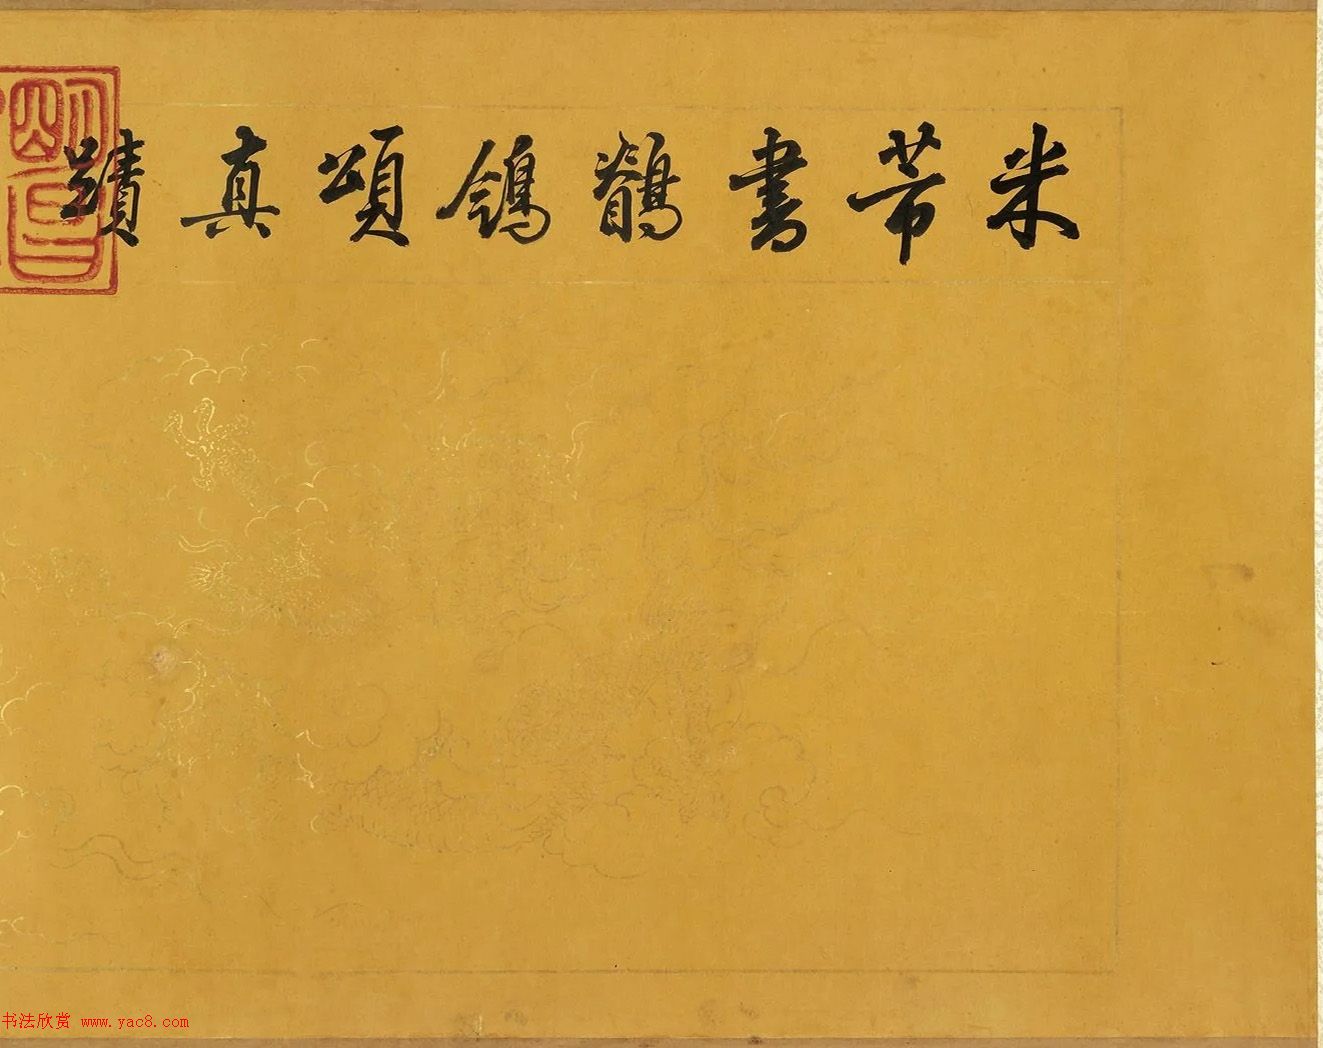 米芾書鶺鴒頌真蹟
书法欣赏 www.yac8.com